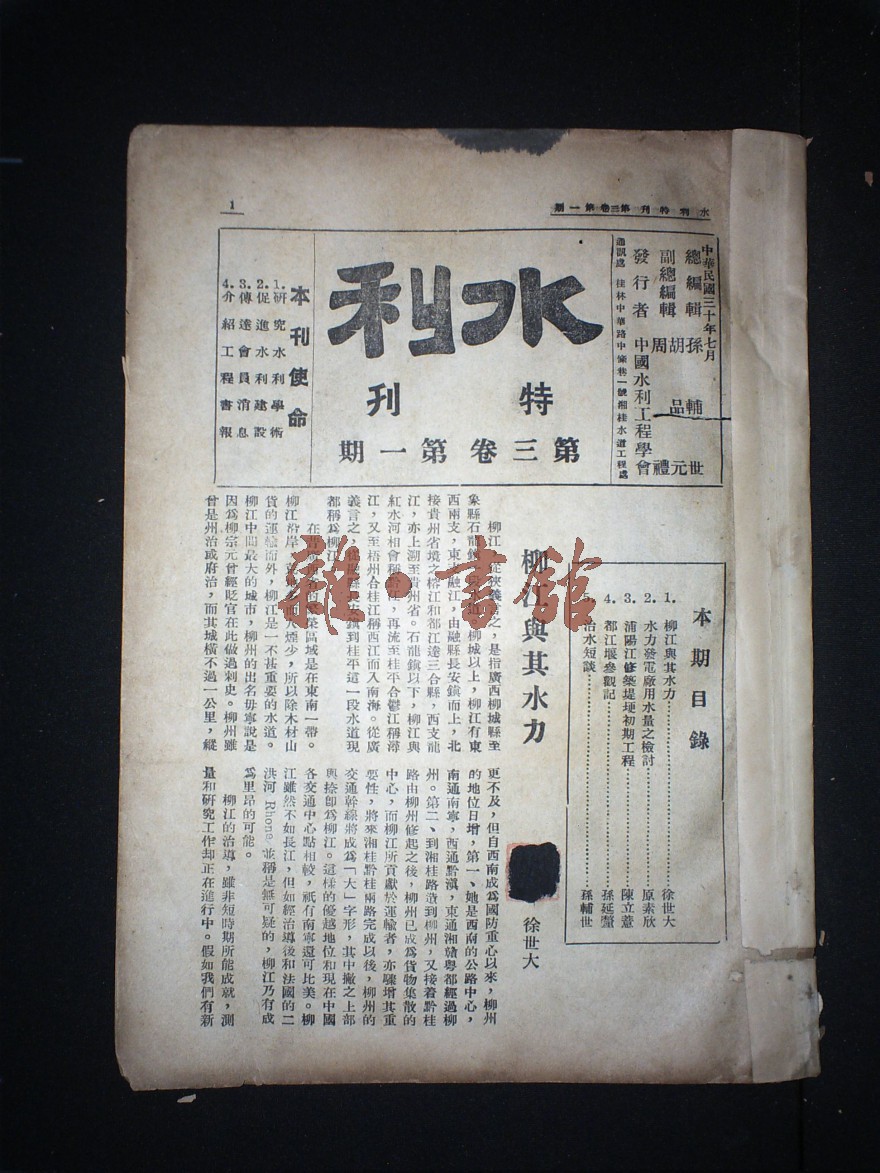 水利特刊第三卷第一期
1
中華民國三十年七月
總編輯 孫輔世
副總編輯 胡品元 周禮
發行者 中國水利工程學會
通訊處 桂林中華路中條巷一號湘桂水道工程處
水利
特刊
第三卷第一期
本刊使命
1. 研究水利學術
2. 促進水利建設
3. 傳達會員消息
4. 介紹工程書報
本期目錄
1. 柳江與其水力……徐世大
2. 水力發電廠用水量之檢討……原素欣
3. 浦陽江修築堤埂初期工程……陳立薏
4. 都江堰參觀記……孫延釐
治水短談……孫輔世
柳江與其水力
徐世大
柳江,從狹義言之,是指廣西柳城縣至
象縣石龍鎮
柳城以上,柳江有東
西兩支,東支融江,由融縣長安鎮而上,北
接貴州省境之榕江和都江達三合縣,西支龍
江,亦上溯至貴州省。石龍鎮以下,柳江與
紅水河相會稱黔江,再流至桂平合鬱江稱潯
江,又至梧州合桂江稱西江而入南海。從廣
義言之,從融縣長安鎮到桂平這一段水道現
都稱爲柳江
區域是在東南一帶。
柳江沿岸
煙少,所以除木材山
貨的運輸而外,柳江是一不甚重要的水道。
柳江中間最大的城市,柳州的出名毋寧說是
因爲柳宗元曾經貶官在此做過刺史。柳州雖
曾是州治或府治,而其城橫不過一公里,縱
更不及,但自西南成爲國防重心以來,柳州
的地位日增,第一、她是西南的公路中心,
南通南寧,西通黔滇,東通湘贛粵都經過柳
州。第二、到湘桂路造到柳州,又接着黔桂
路由柳州修起之後,柳州已成爲貨物集散的
中心,而柳江所貢獻於運輸者,亦驟增其重
要性,將來湘桂黔桂兩路完成以後,柳州的
交通幹線將成爲「大」字形,其中撇之上部
與捺卽爲柳江。這樣的優越地位和現在中國
各交通中心點相較,祇有南寧還可比美。柳
江雖然不如長江,但如經治導後和法國的二
洪河 Rhone 並稱是無可疑的,柳江乃有成
爲里昂的可能。
柳江的治導,雖非短時期所能成就,測
量和研究工作却正在進行中。假如我們有新
雜·書館